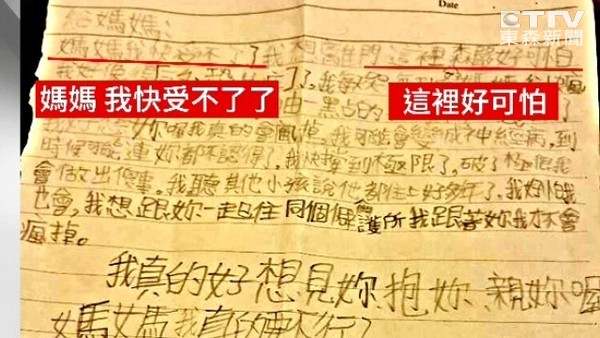 Date
ETTV
東森新聞
給媽媽:
媽媽我快受不了了我想離開這裡森嚴好可怕
媽媽 我快受不了了
這裡好可怕
妳喔我真的會瘋掉。我可能會變成神經病,到
時候可能連妳都不認得了。我快撐到極限了。破了極限我
會做出傻事。我聽其他小孩說他都住上好多年了。我好怕我
也會,我想跟妳一起住同個保護所我跟著妳我才不會
瘋掉。
我真的好想見妳抱妳親妳喔
媽媽我真的要不行了